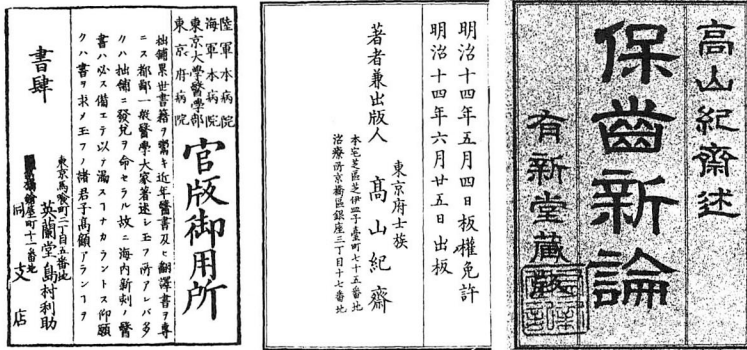 高山紀齋述
保齒新論
有新堂藏版
明治十四年五月四日板權免許
明治十四年六月廿五日出板
東京府士族
著者兼出版人 高山紀齋
本宅芝區芝伊皿子臺町七十五番地
治療所京橋區銀座三丁目十七番地
陸軍本病院
海軍本病院
東京大學醫學部
東京府病院
官版御用所
拙鋪累世書籍ヲ鬻キ近年醫書及ヒ飜譯書ヲ專
ニス都鄙一般醫學大家著述シ玉フ所アレバ多
クハ拙鋪ニ發兌ヲ命セラル故ニ海内新刻ノ醫
書ハ必ス備エテ以テ漏スヿナカラントス仰願
クハ書ヲ求メ玉フノ諸君子高顧アランヿヲ
書肆
東京馬喰町二丁目五番地
英蘭堂島村利助
屋町十一番地
同支店